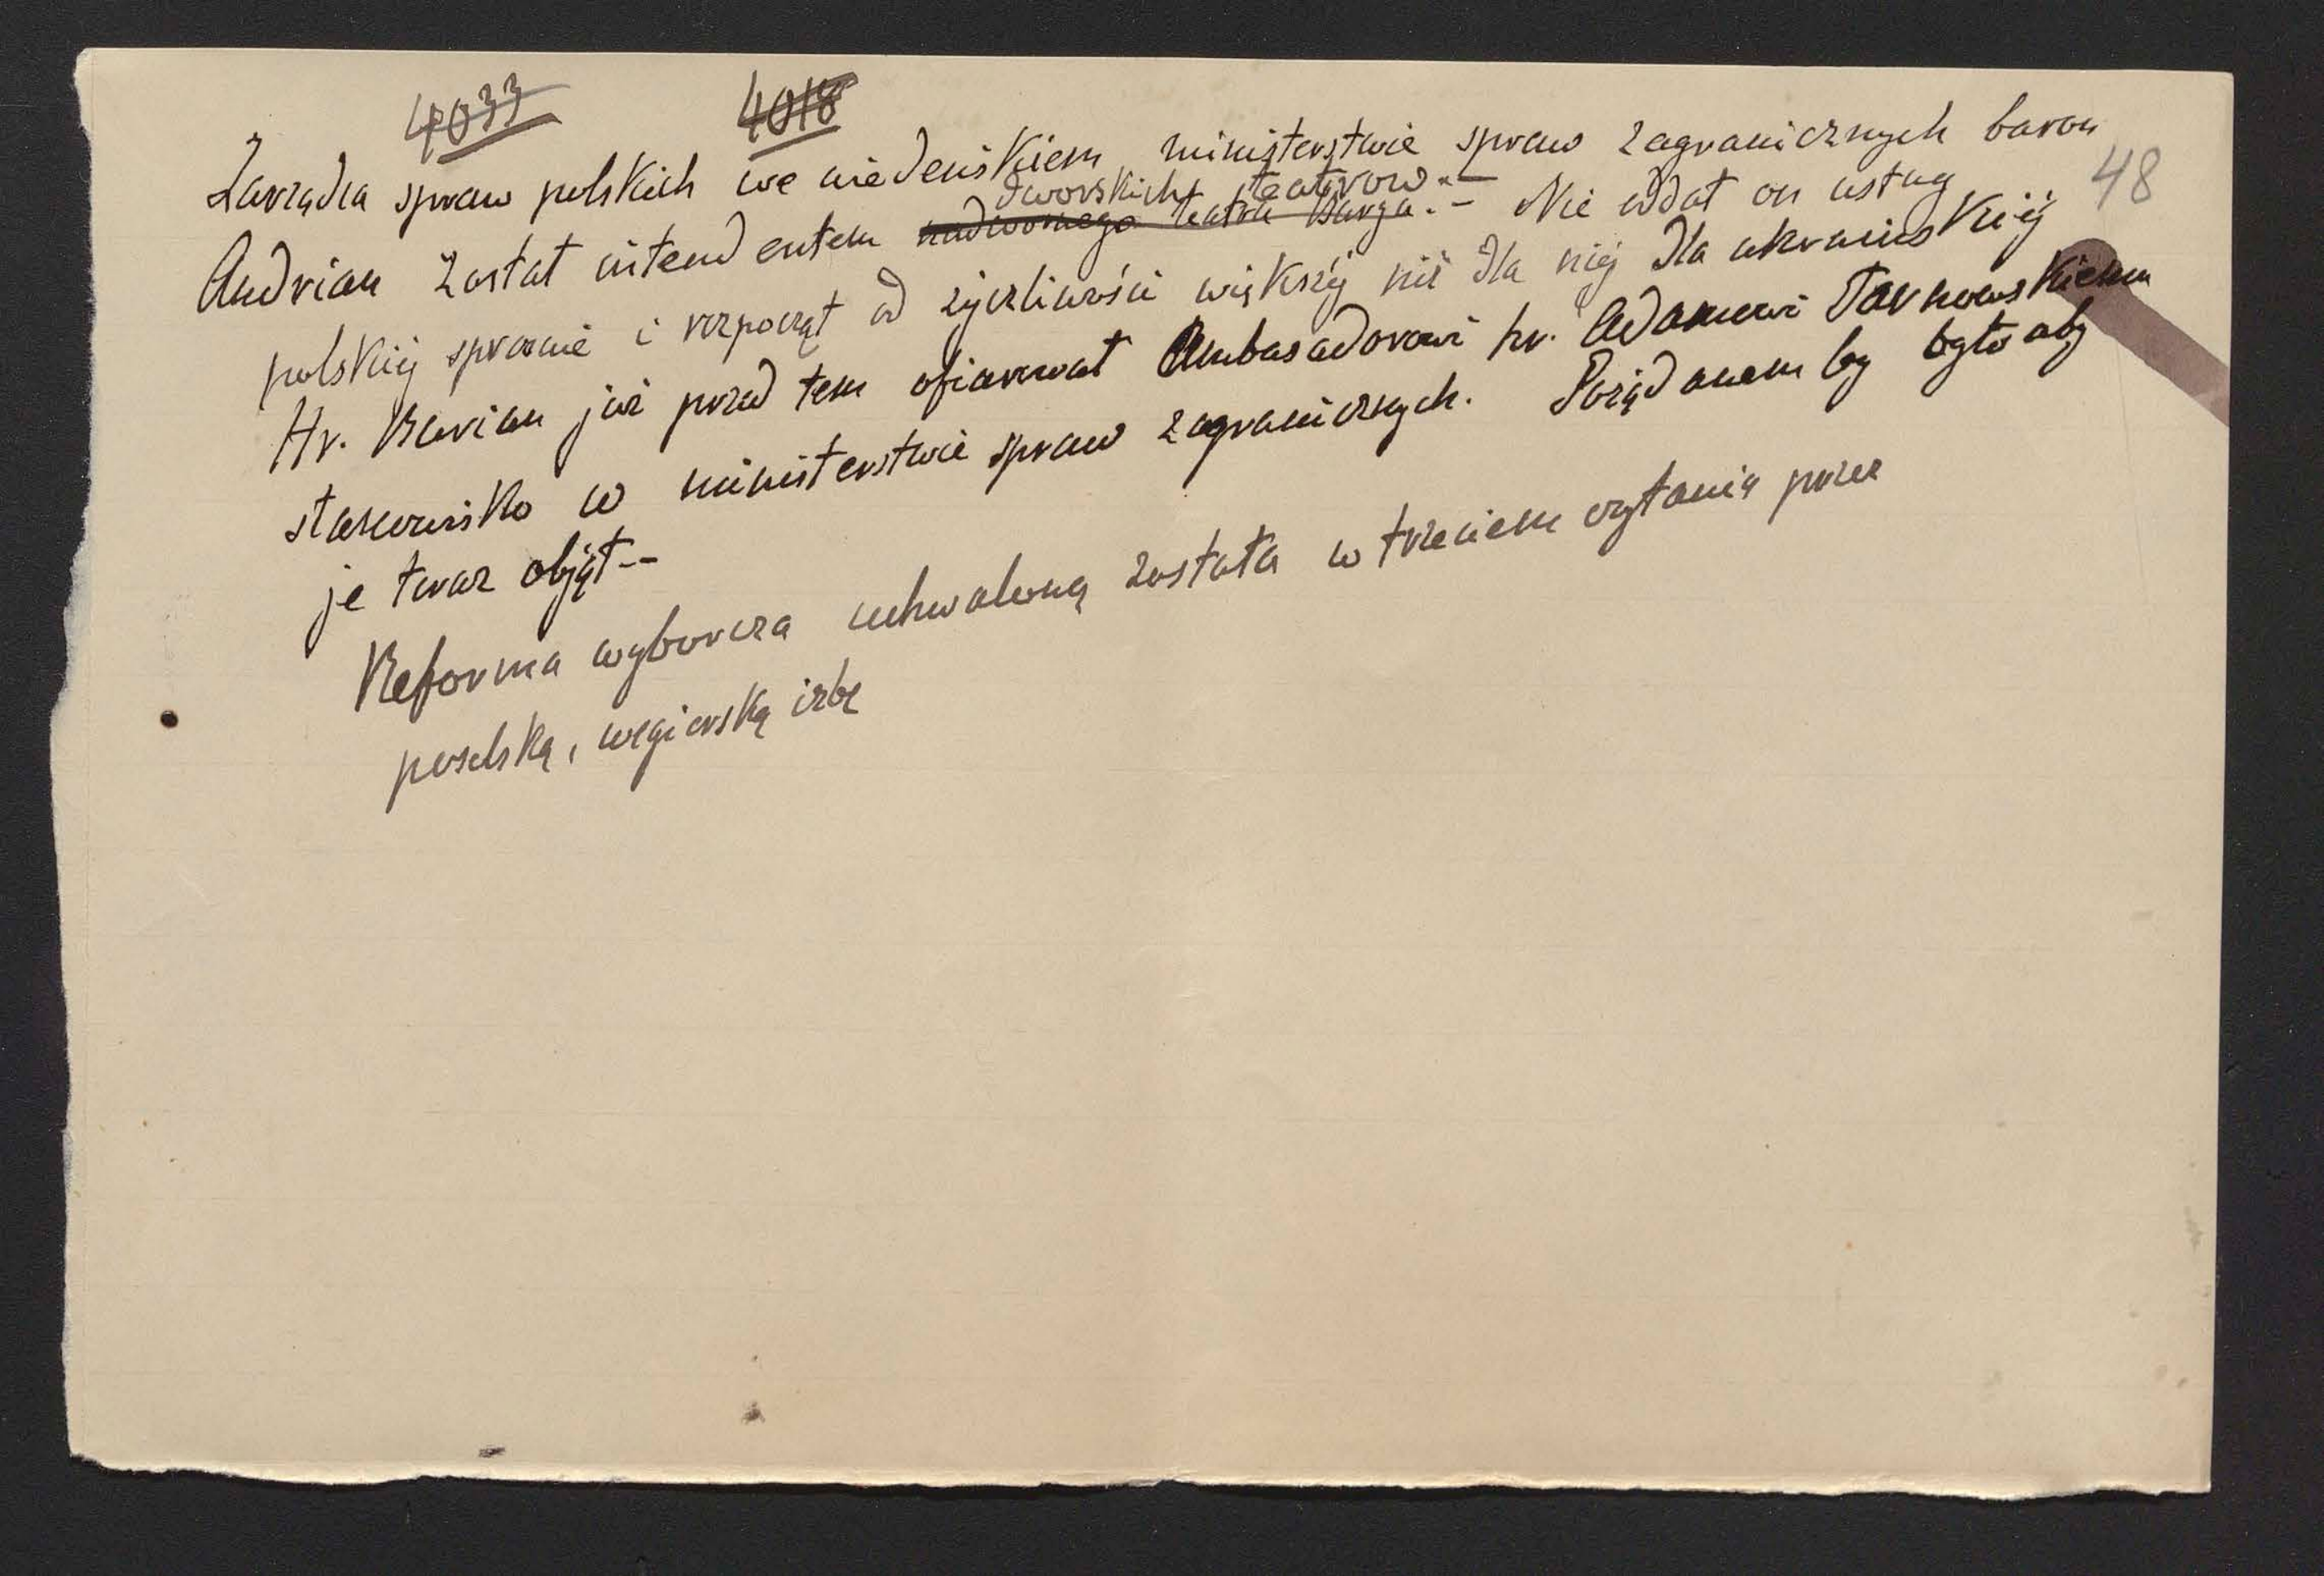 4033 4018
48
Zarządca spraw polskich we wiedeńskiem ministerstwie spraw zagranicznych baron
dworskich teatrów.-
Andrian został intendentem nadwornego teatru Burga.- Nie oddał on usług
polskiéj sprawie i rozpoczął od życzliwości większéj niż dla niéj dla ukraińskiéj
Hr. Burian już przed tem ofiarował Ambasadorowi hr. Adamowi Tarnowskiemu
stanowisko w ministerstwie spraw zagranicznych. Pożądanem by było aby
je teraz objął--
Reforma wyborcza uchwaloną została w trzeciem czytaniu przez
poselską, węgierską izbę